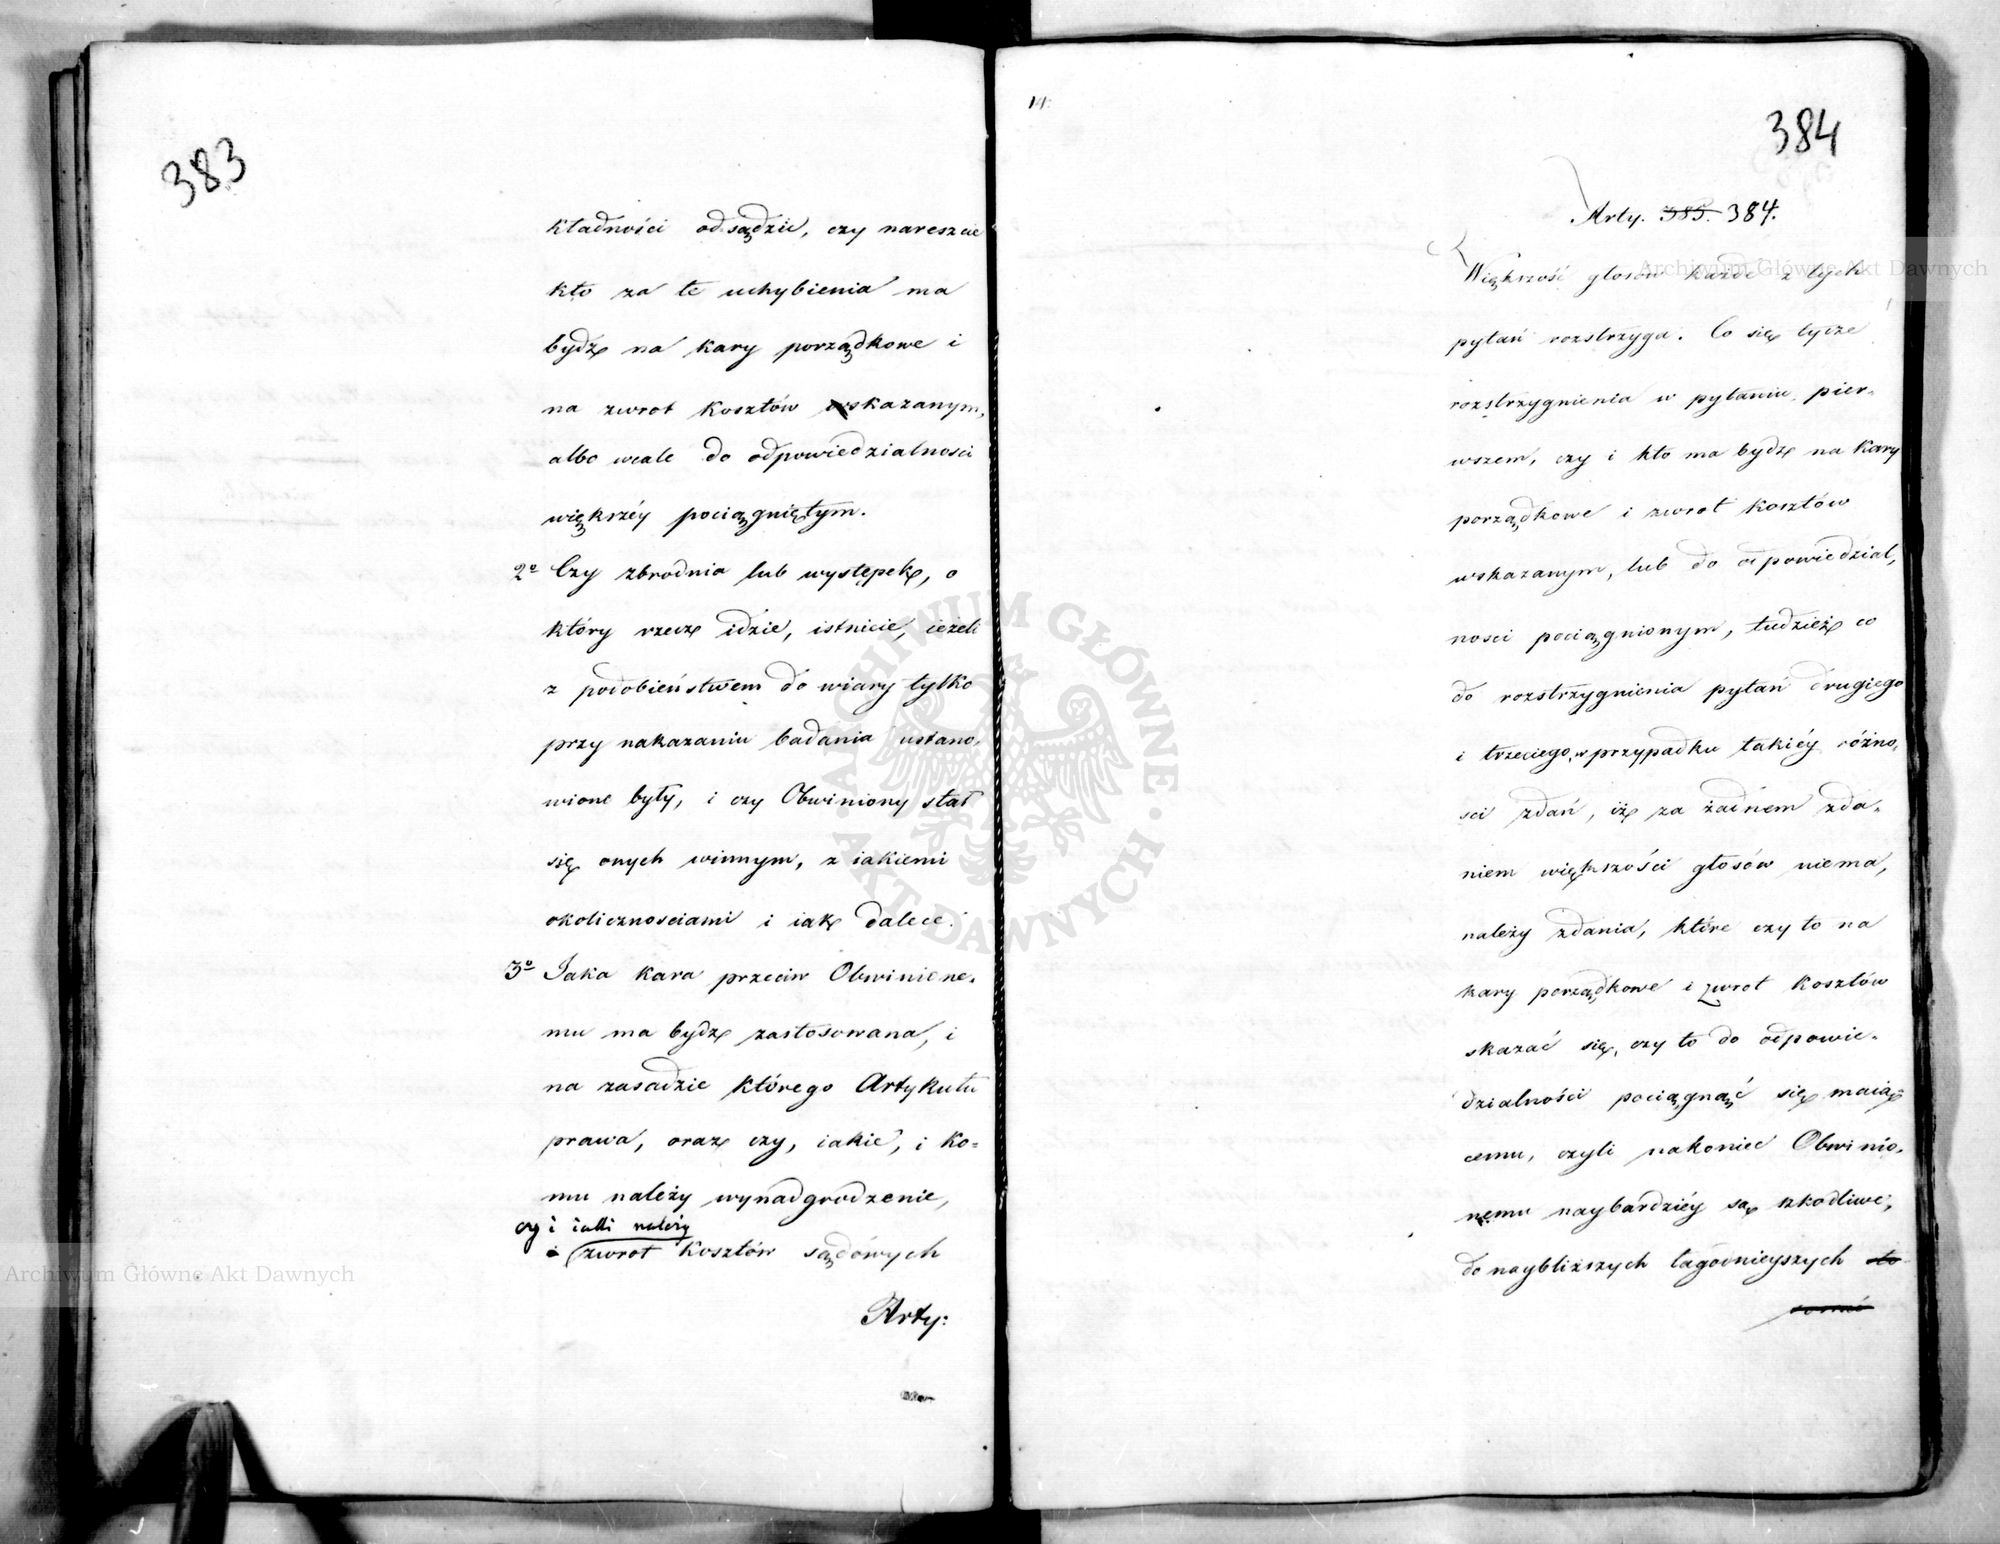 383
kładności odsądzić, czy nareszcie
kto za te uchybienia ma
bydź na kary porządkowe i
na zwrot kosztów wskazanym,
albo wcale do odpowiedzialności
większéy pociągniętym.
2º Czy zbrodnia lub występek, o
który rzecz idzie, istnieie, ieżeli
z podobieństwem do wiary tylko
przy nakazaniu badania ustano-
wione były, i czy Obwiniony stał
się onych winnym, z iakiemi
okolicznosciami i iak dalece.
3º Jaka kara przeciw Obwinione-
mu ma bydź zastosowana, i
na zasadzie którego Artykułu
prawa, oraz czy, iakie, i ko-
mu należy wynadgrodzenie,
czy i iaki należy
i zwrot kosztów sądowych
Arty:
14.
384
Arty. 385. 384.
Większość głosów każde z tych
pytań rozstrzyga. Co się tycze
rozstrzygnienia w pytaniu pier-
wszem, czy i kto ma bydź na kary
porządkowe i zwrot kosztów
wskazanym, lub do odpowiedzial-
nosci pociągnionym, tudzież co
do rozstrzygnienia pytań drugiego
i trzeciego, w przypadku takiéy różno-
sci zdań, iż za żadnem zda-
niem większości głosów niema,
należy zdania, które czy to na
kary porządkowe i zwrot kosztów
skazać się, czy to do odpowie-
dzialności pociągnąć się maią-
cemu, czyli nakoniec Obwinio-
nemu naybardziéy są szkodliwe,
do naybliższych łagodnieyszych
Archiwum Główne Akt Dawnych
Archiwum Główne Akt Dawnych
ARCHIWUM GŁÓWNE · AKT DAWNYCH ·